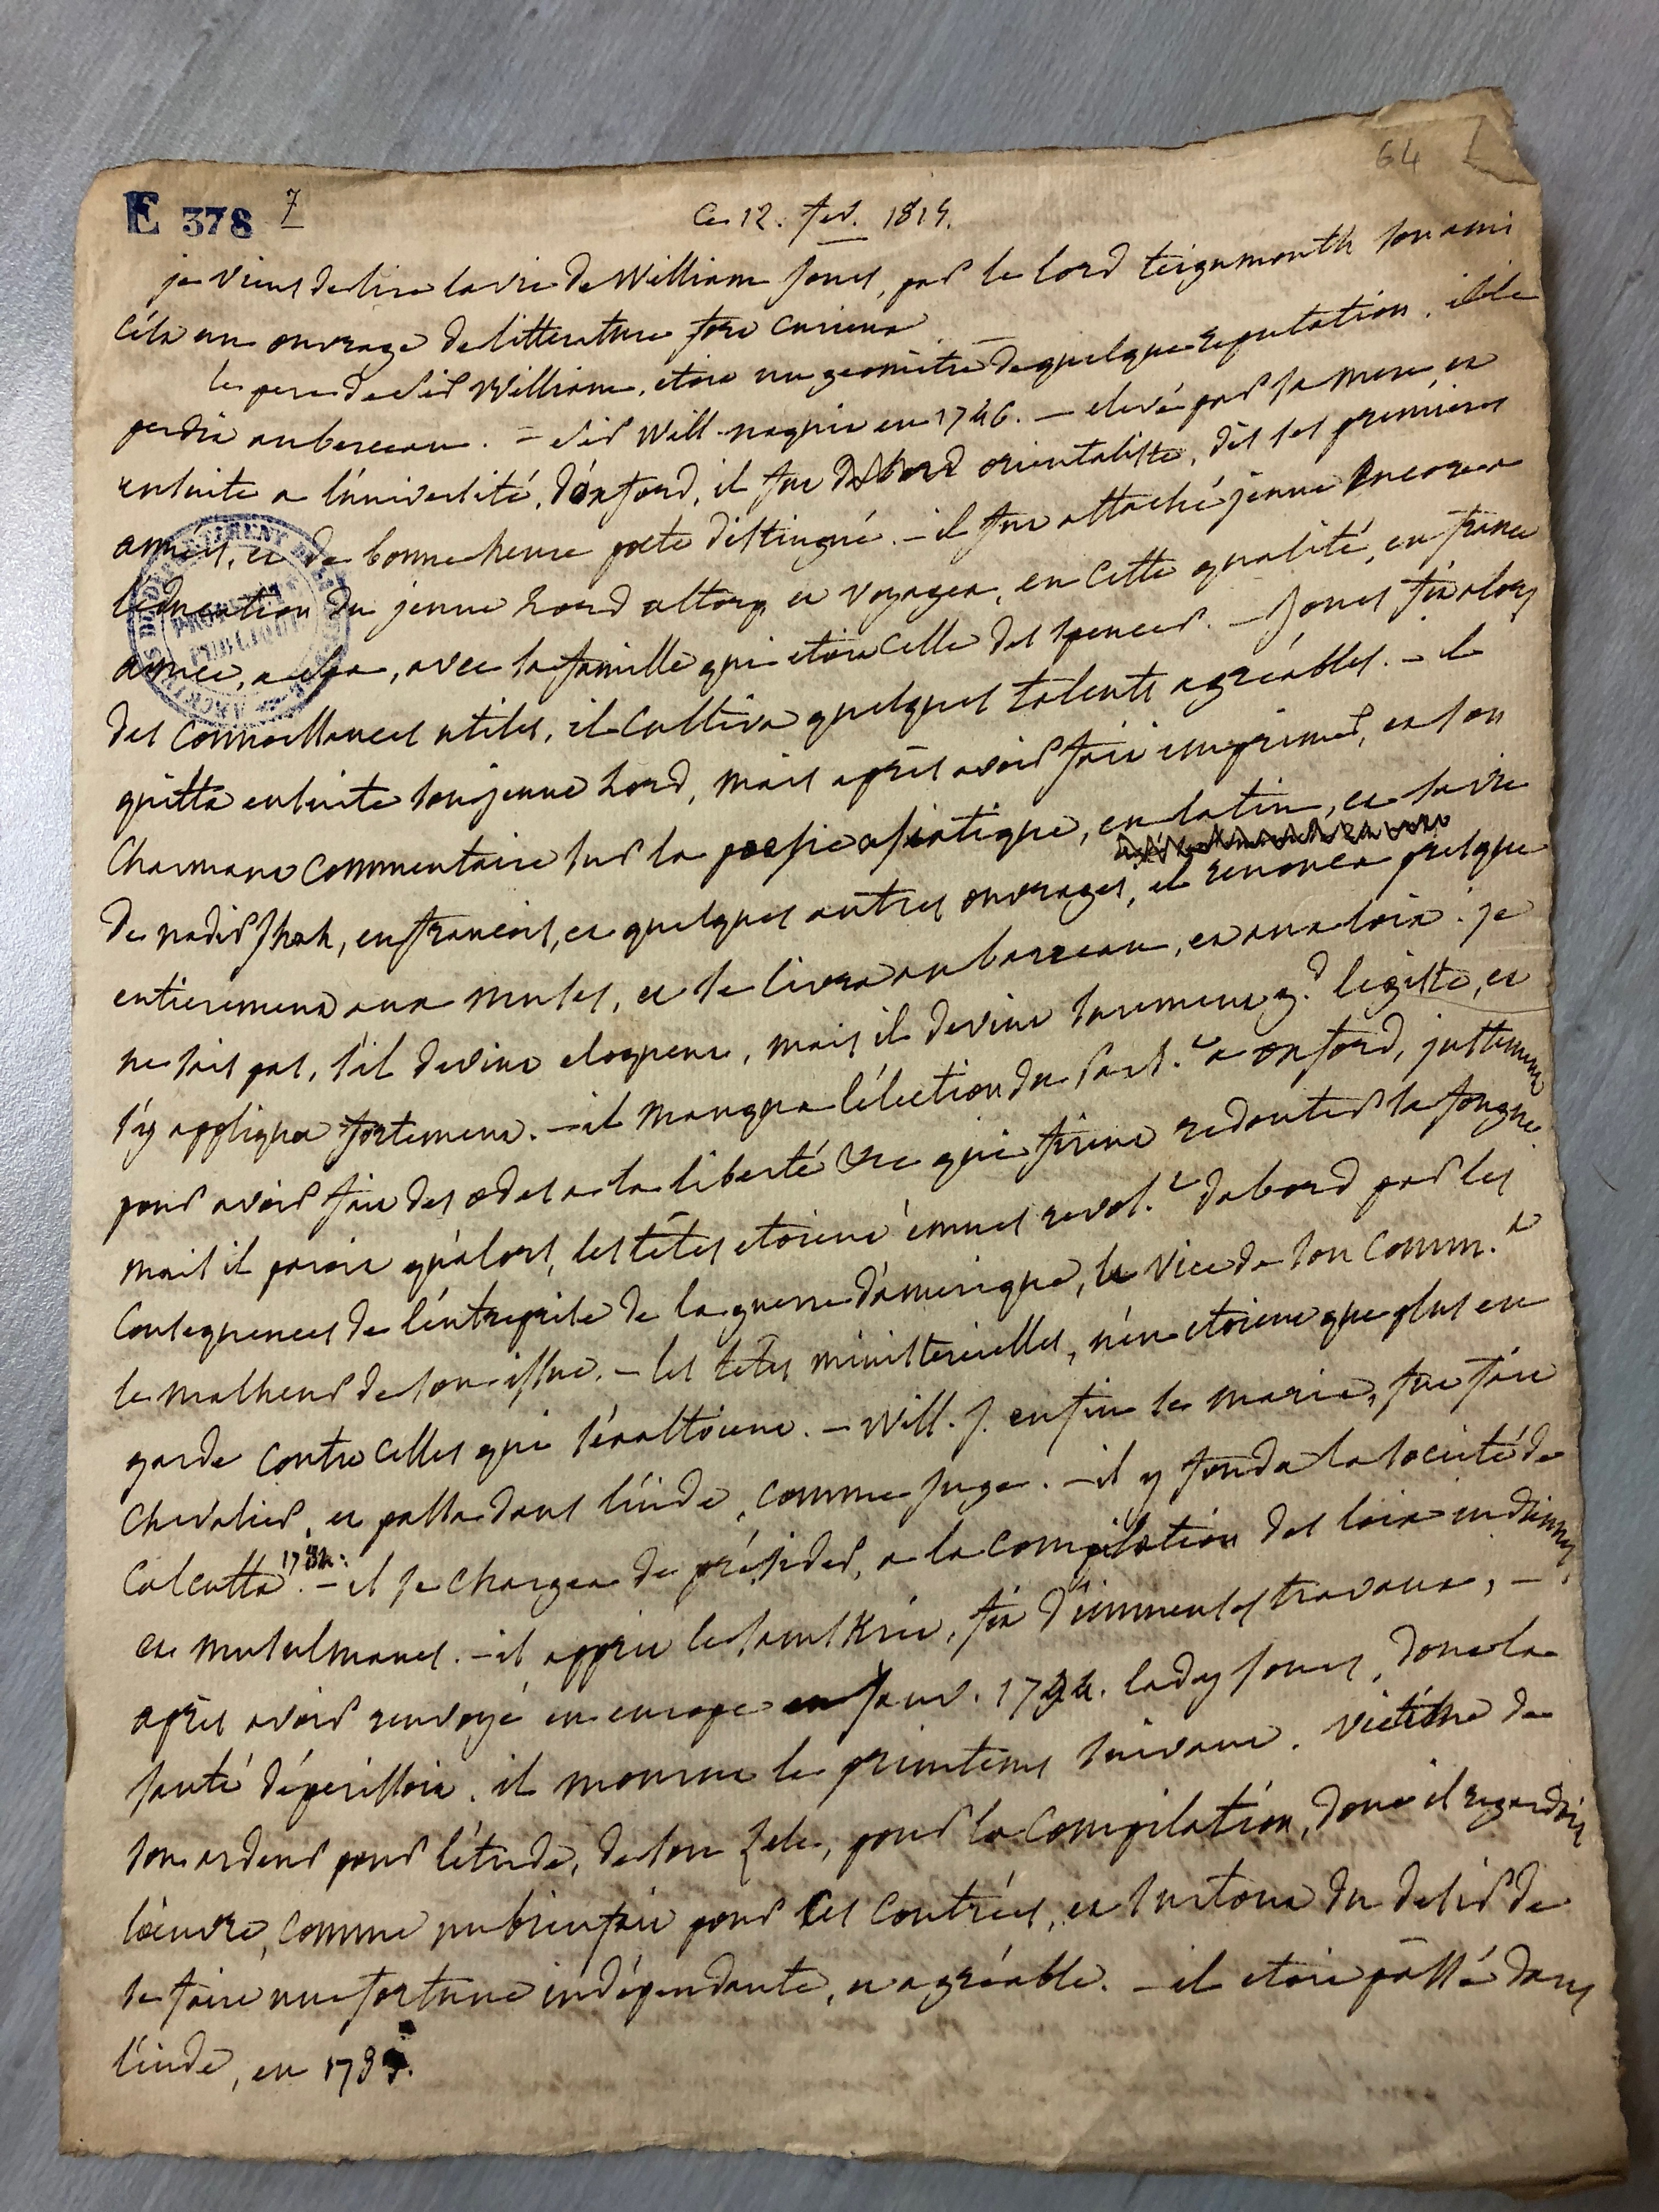 64
E 378 7
Ce 12. fev. 1815.
je viens de lire la vie de William Jones, par le lord teignmouth son ami
c'est un ouvrage de litterature fort curieux
le pere de Sir William, etoit un geomètre de quelque reputation. il le
perdit au berceau. = Sir Will. naquit en 1746. – elevé par sa mere, et
ensuite a l'université, d'oxford, il fut d'abord orientaliste, dès ses premieres
années, et de bonne heure poete distingué. – il fut attaché jeune encore a
l'education du jeune Lord altorp et voyagea, en cette qualité, en france
avec, avec sa famille qui etoit celle des spencer. – Jones fit alors
des connoissances utiles, il cultiva quelques talents agréables. – il
quitta ensuite son jeune Lord, mais après avoir fait imprimer, et son
charmant commentaire sur la poesie asiatique, en latin, et la vie
de nadir Shah, en francois, et quelques autres ouvrages, il renonca presque
entierement aux muses, et se livra au barreau, et aux loix. je
ne sais pas, s'il devint eloquent, mais il devint surement gd. legiste, et
s'y appliqua fortement. – il manqua l'élection du parl.t a oxford, justement
pour avoir fait des odes a la liberté &c qui firent redouter sa fougue.
mais il paroit qu'alors, les têtes etoient émues revol.t d'abord par les
consequences de l'entreprise de la guerre d'amerique, le vice de son comm.t
le malheur de son issue. – les tetes ministerielles, n'en etoient que plus en
garde contre celles qui s'exaltoient. – Will. J. enfin se marie, fut fait
chevalier, et passa dans l'inde, comme juge. – il y fonda la societé de
Calcutta 1784. – il se chargea de présider, a la compilation des loix indiennes,
et musulmanes. – il apprit le sanskrit, fit d'immenses travaux, –
après avoir renvoyé en europe en janv. 1794. lady Jones, dont la
santé dépérissoit. il mourut le printems suivant. victime de
son ardeur pour l'étude, de son zele, pour la compilation, dont il regardoit
l'oeuvre, comme un bienfait pour ces contrées, et surtout du desir de
se faire une fortune indépendante, et agréable. – il etoit passé dans
l'inde, en 1783.